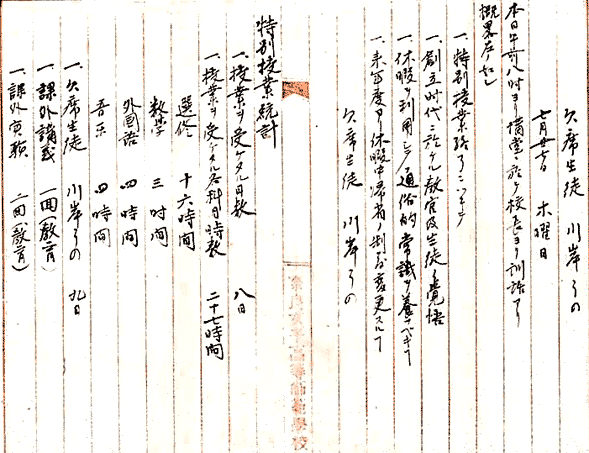 欠席生徒 川岸りの
七月廿七日 木曜日
本日午前八時ヨリ講堂ニ於テ校長ヨリ訓話アリ
概略左ノ如シ
一、特別授業終了ニツキテ
一、創立時代ニ於ケル教官及生徒ノ覚悟
一、休暇ヲ利用シテ通俗的常識ヲ養フベキヿ
一、来年度ヨリ休暇中帰省ノ制ヲ変更スルヿ
欠席生徒 川岸りの
奈良女子高等師範學校
特別授業統計
一、授業ヲ受ケタル日数 八日
一、授業ヲ受ケタル各科目時数 二十七時間
選修 十六時間
数学 三時間
外国語 四時間
音楽 四時間
一、欠席生徒 川岸りの 九日
一、課外講義 一回(教育)
一、課外実験 二回(教育)